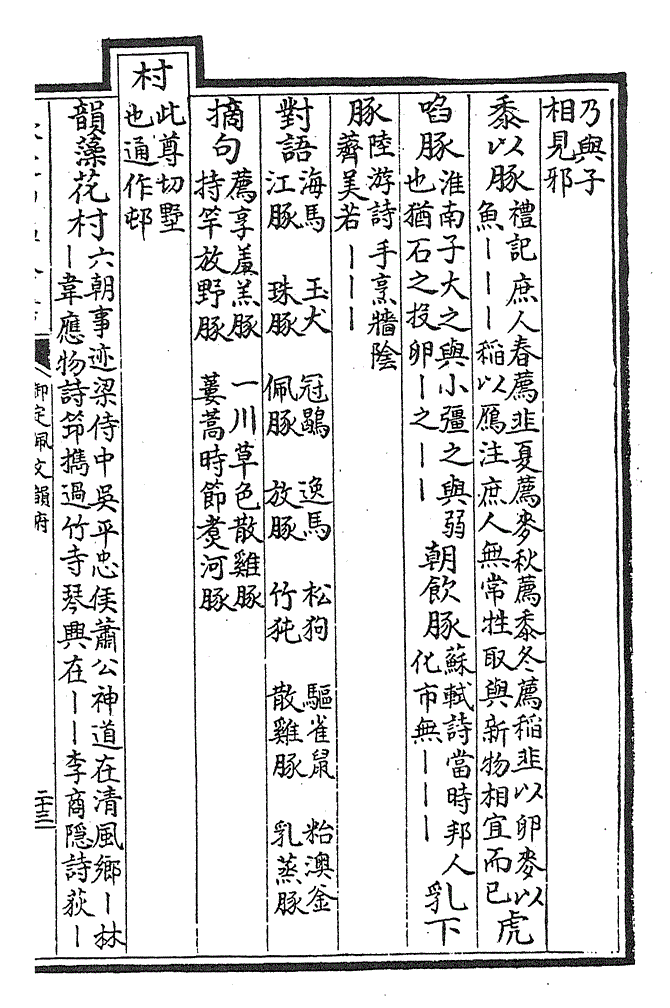 乃與子
相見邪
黍以豚禮記庶人春薦韭夏薦麥秋薦黍冬薦稻韭以卵麥以
魚｜｜｜稻以鴈注庶人無常牲取與新物相宜而已虎
啗豚淮南子大之與小彊之與弱
也猶石之投卵｜之｜｜朝飲豚蘇軾詩當時邦人
化市無｜｜｜乳下
豚陸游詩手烹牆陰
薺美若｜｜｜
對語海馬 玉犬 冠鷸 逸馬 松狗 驅雀鼠 粭澳釜
江豚 珠豚 佩豚 放豚 竹㹠 散雞豚 乳蒸豚
摘句薦享羞羔豚 一川草色散雞豚
持竿放野豚 蔞蒿時節煑河豚
村此尊切墅
也通作邨
韻藻花村六朝事迹梁侍中吳平忠侯蕭公神道在清風鄉｜林
｜韋應物詩笻攜過竹寺琴興在｜｜李商隱詩荻｜
御定佩文韻府
二十三